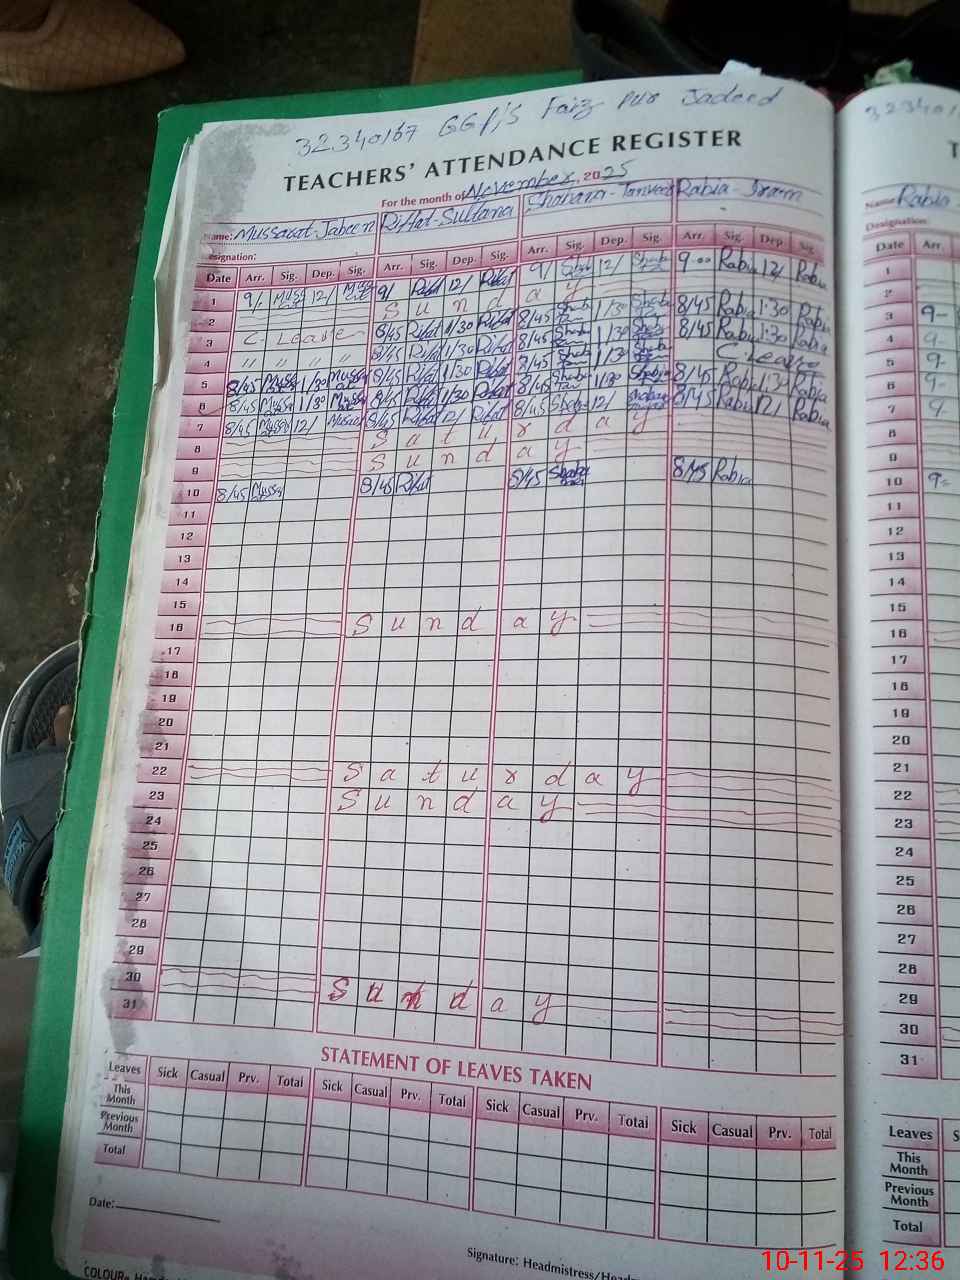 32340167 GGP/S Faiz Pur Jadeed
TEACHERS' ATTENDANCE REGISTER
For the month of November, 2025
Name: Mussarat-Jabeen Riffat-Sultana Shabana-Tanveer Rabia-Iram
Designation:
Date Arr. Sig. Dep. Sig. Arr. Sig. Dep. Sig. Arr. Sig. Dep. Sig. Arr. Sig. Dep. Sig.
1 9/- 12/ 9/ Rifat 12/ Rifat 9/ 12/ 9.00 Rabia 12/ Rabia
2 Sunday
3 C-Leave 8/45 Rifat 1/30 Rifat 8/45 1/30 8/45 Rabia 1:30 Rabia
4 " " " " 8/45 Rifat 1/30 Rifat 8/45 1/30 8/45 Rabia 1:30 Rabia
5 8/45 1/30 8/45 Rifat 1/30 Rifat 8/45 1/30 C.Leave
6 8/45 1/30 8/45 Rifat 1/30 Rifat 8/45 1/30 8/45 Rabia 1:30 Rabia
7 8/45 12/ 8/45 Rifat 12/ Rifat 8/45 12/ 8/45 Rabia 12/ Rabia
8 Saturday
9 Sunday
10 8/45 8/45 Rifat 8/45 8/45 Rabia
11
12
13
14
15
16 Sunday
17
18
19
20
21
22 Saturday
23 Sunday
24
25
26
27
28
29
30 Sunday
31
STATEMENT OF LEAVES TAKEN
Leaves Sick Casual Prv. Total Sick Casual Prv. Total Sick Casual Prv. Total Sick Casual Prv. Total
This Month
Previous Month
Total
Date:
Signature: Headmistress/
323401
T
Name: Rabia
Designation:
Date Arr.
1
2
3 9-
4 9-
5 9-
6 9-
7 9-
8
9
10 9-
11
12
13
14
15
16
17
18
19
20
21
22
23
24
25
26
27
28
29
30
31
Leaves S
This Month
Previous Month
Total
10-11-25 12:36